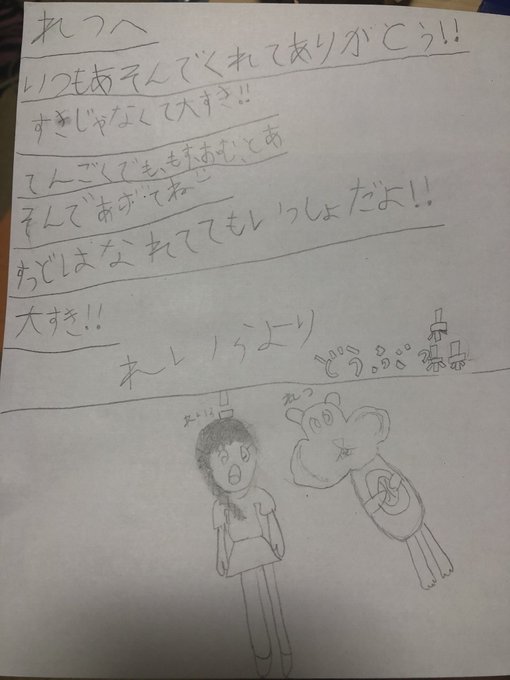 れつへ
いつもあそんでくれてありがとう!!
すきじゃなくて大すき!!
てんごくでも、もすおむ、とあ
そんであげてねじ
すっどはなれててもいっしょだよ!!
大すき!!
れいらより
どうぶつ
れつ